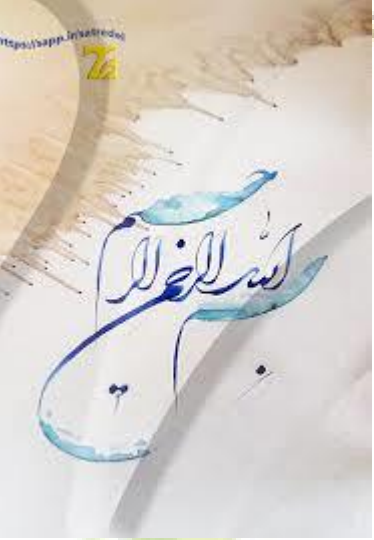 https://sapp.ir/satredel
بسم الله الرحمن الرحیم